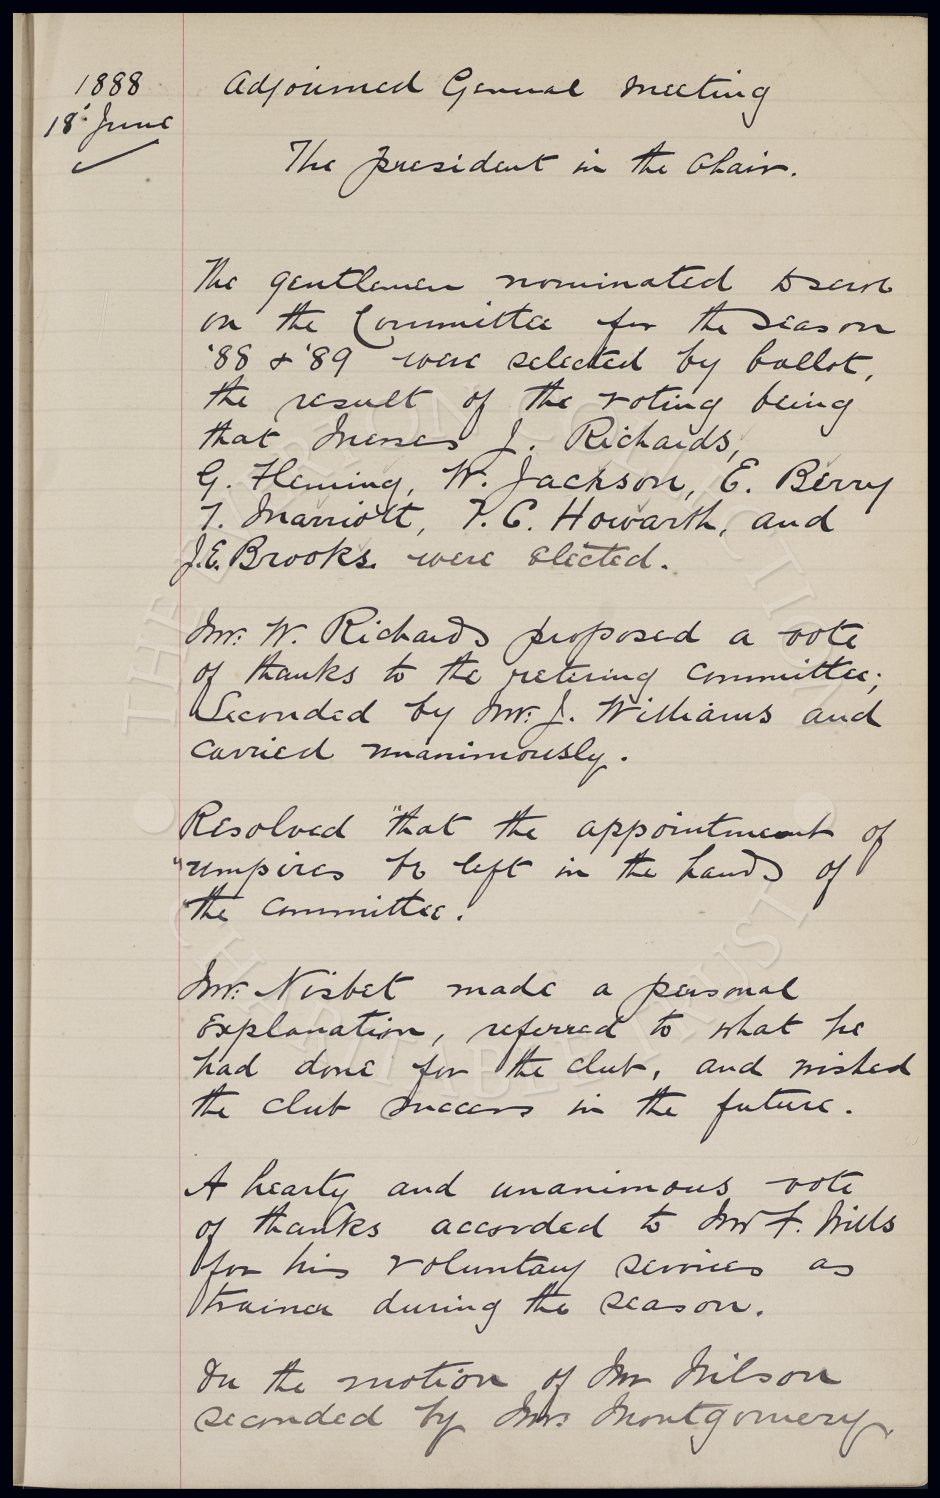 1888
18: June
Adjourned General Meeting
The president in the Chair.
The gentlemen nominated to serve
on the Committee for the season
'88 & '89 were selected by ballot,
the result of the voting being
that Messrs J. Richards,
G. Fleming, W. Jackson, E. Berry
T. Marriott, T. C. Howarth, and
J.E. Brooks. were elected.
Mr. W. Richards proposed a vote
of thanks to the retering committee;
Seconded by Mr. J. Williams and
carried unanimously.
Resolved "that the appointment of
"umpires be left in the hands of
"the committee.
Mr. Nisbet made a personal
explanation, referred to what he
had done for the club, and wished
the club success in the future.
A hearty and unanimous vote
of thanks accorded to Mr F. Wills
for his voluntary services as
trainer during the season.
On the motion of Mr Wilson
seconded by Mr. Montgomery,
THE EVERTON COLLECTION
CHARITABLE TRUST